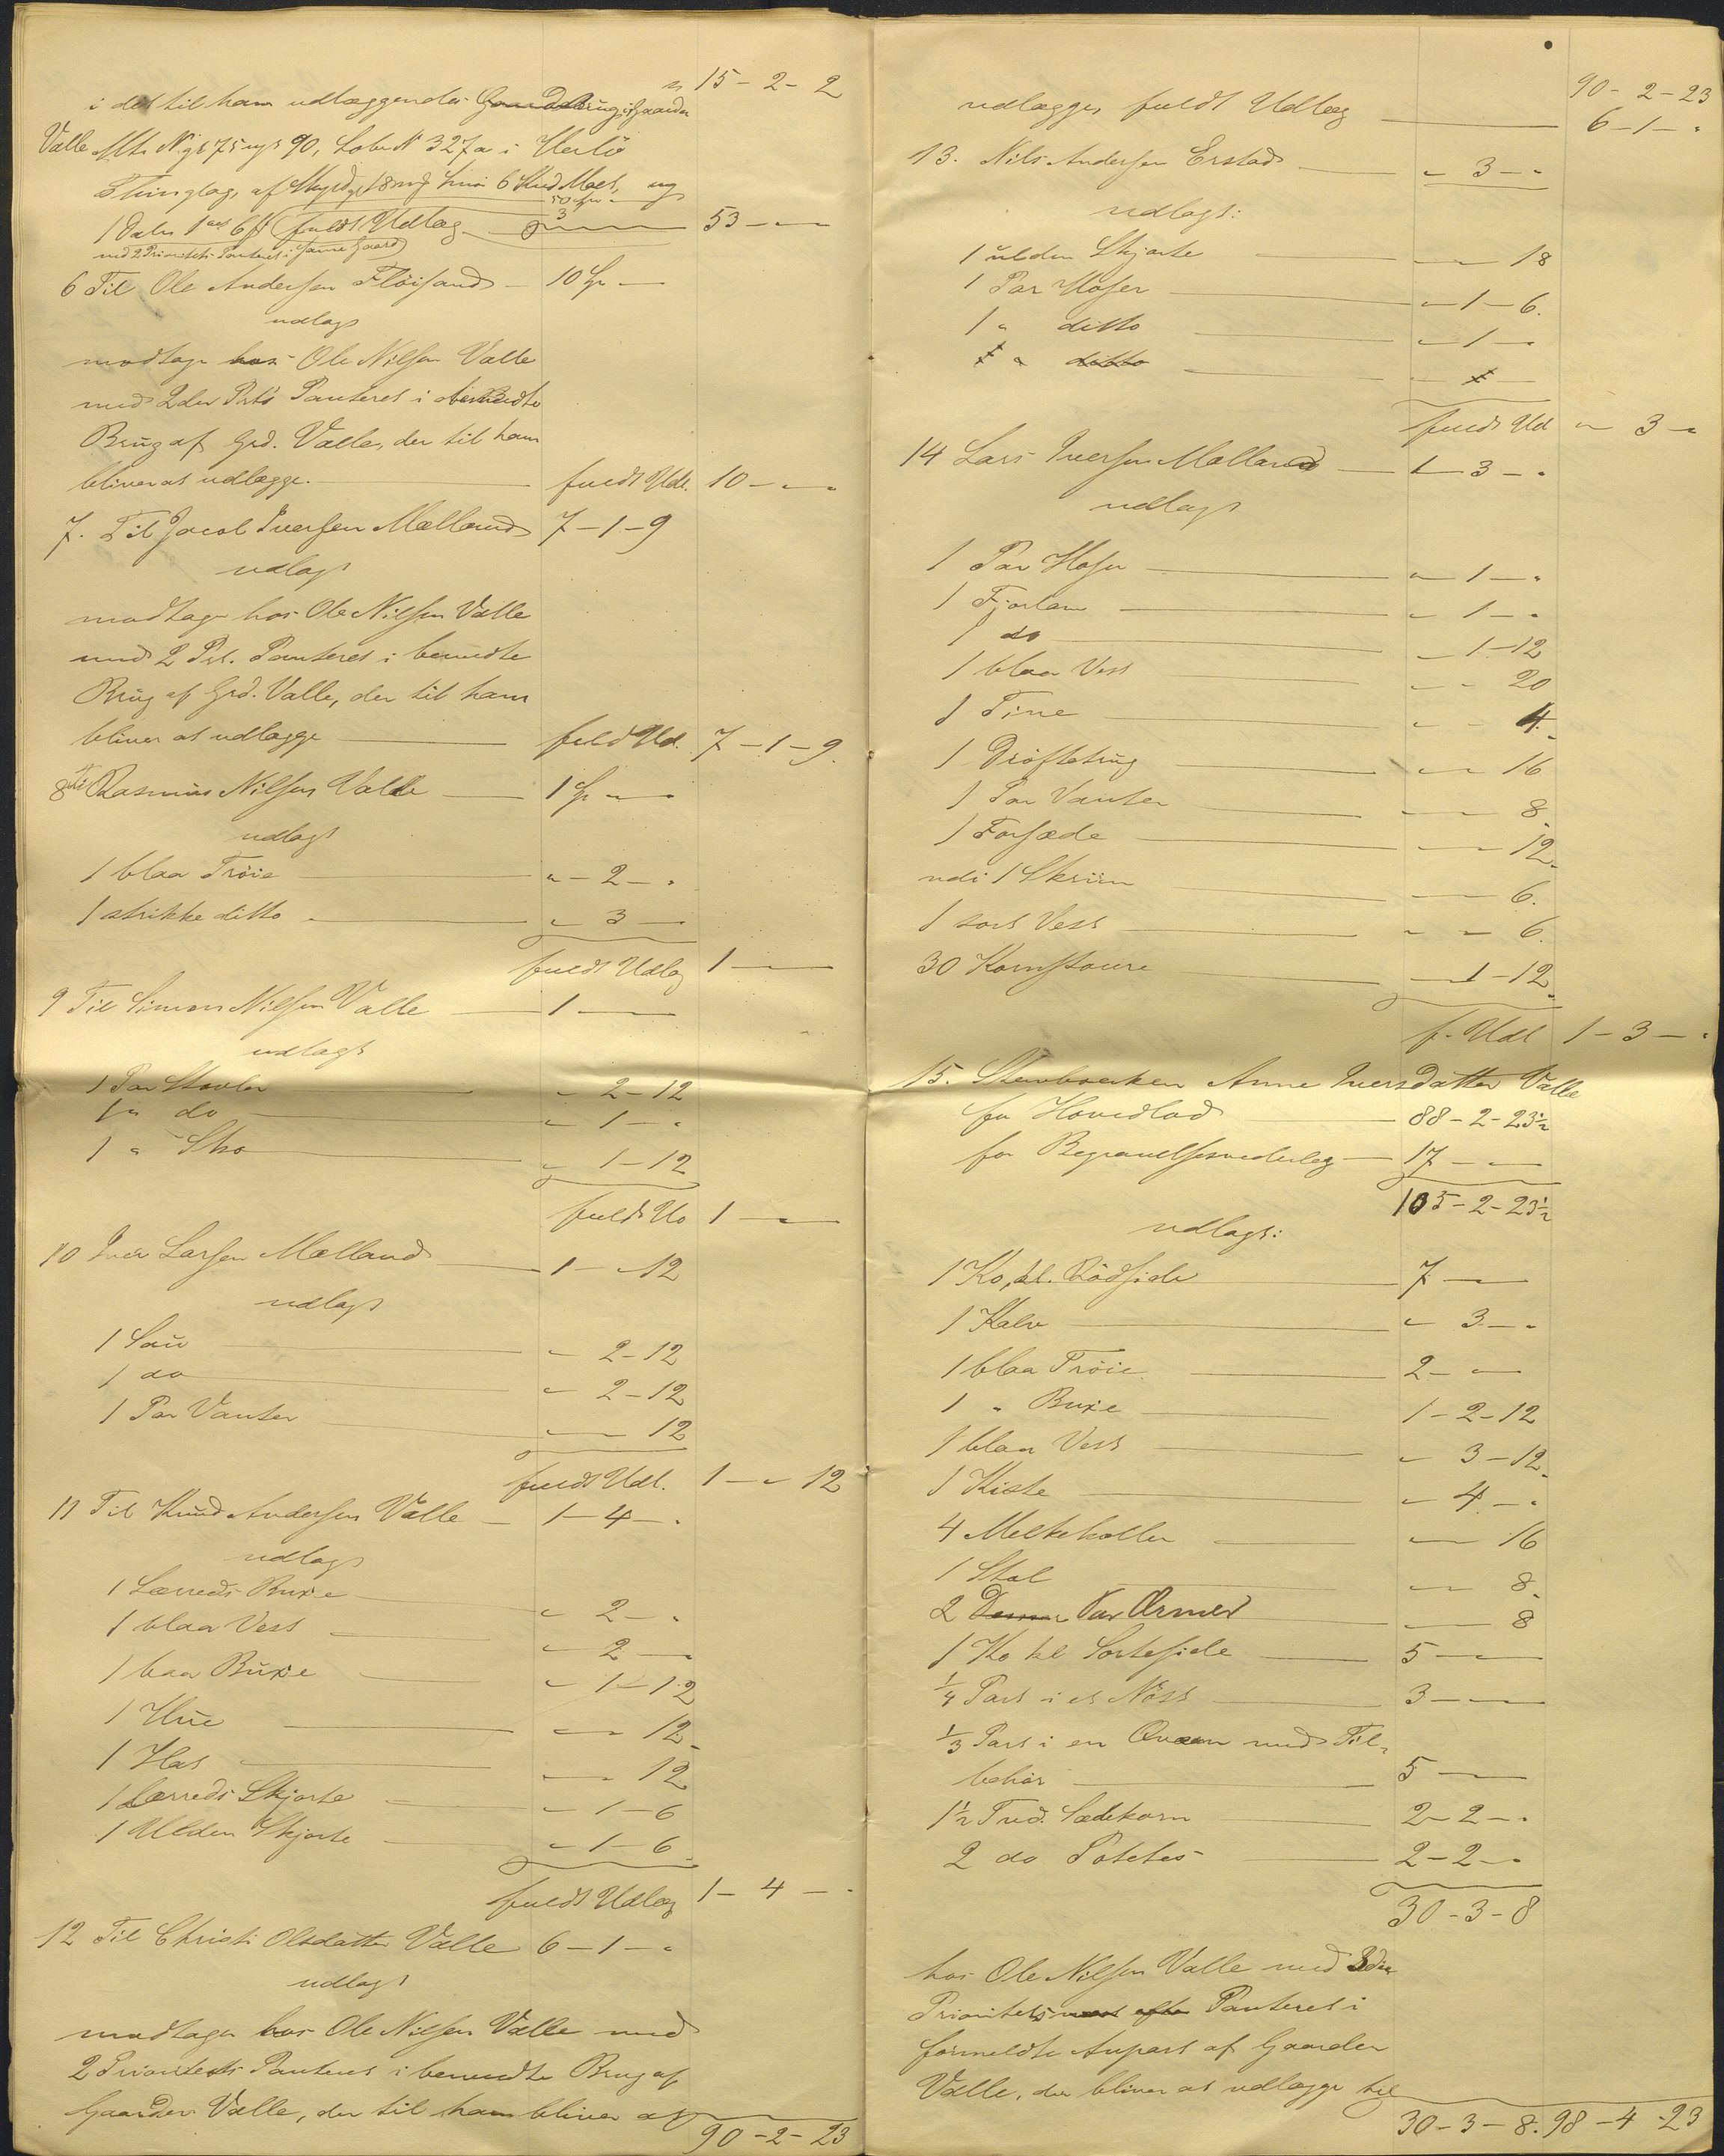 15 - 2 - 2
i det til ham udlæggende Gaardsbrug i Gaarden
Valle Mtr N. gl 75 nyt 90, Løbe N 327a i Herlø
Thinglag, af Skyld 18 mk 6 Kud Malt, og
1 Daler 1 ort 6 ß fuldt Udlæg 53 - " - "
med 2 Prioritets Panteret i samme Gaard
6 Til Ole Andersen Fløisand - 10 Sp - "
udlagt
modtage hos Ole Nilsen Valle
med 2den Prts Panteret i bemeldte
Brug af Grd. Valle, der til ham
bliver at udlægge. fuldt Udl. 10 - " - "
7. Til Jacob Iversen Mælland 7 - 1 - 9
udlagt
modtage hos Ole Nilsen Valle
med 2 Prt. Panteret i bemeldte
Brug af Grd. Valle, der til ham
bliver at udlægge fuld Ud. 7 - 1 - 9.
8 til Rasmus Nilsen Valle 1 Sp " - "
udlagt
1 blaa Trøie " - 2 - "
1 strikke ditto " 3 - "
fuldt Udlæg 1 - "
9 Til Simon Nilsen Valle 1 - "
udlagt
1 Par Støvler " 2 - 12
1 " do " 1 - "
1 " Sko " 1 - 12
fuldt Ud 1 - "
10 Iver Larsen Mælland 1 - " 12
udlagt
1 Sau " 2 - 12
1 do " 2 - 12
1 Par Vanter " - " 12
fuldt Udl. 1 - " - 12
11 Til Knud Andersen Valle - 1 - 4 - "
udlagt
1 Lærreds Buxe " 2 - "
1 blaa Vest " 2 - "
1 baa Buxe " 1 - 12
1 Hue " - " 12
1 Hat " - " 12
1 Lærreds Skjorte " 1 - 6
1 Ulden Skjorte " 1 - 6
fuldt Udlæg 1 - 4 - "
12 Til Christi Olsdatter Valle 6 - 1 - "
udlagt
modtager hos Ole Nilsen Valle med
2 Prioritets Panteret i bemeldte Brug af
Gaarden Valle, der til ham bliver at
90 - 2 - 23
90 - 2 - 23
udlægges fuldt Udlæg 6 - 1 - "
13. Nils Andersen Erstad " 3 - "
udlagt:
1 ulden Skjorte " - " 18
1 Par Hoser " 1 - 6.
1 " ditto " 1 - "
1 " ditto - 1 -
fuldt Ud " 3 - "
14 Lars Iversen Mælland 1 - 3 - "
udlagt
1 Par Hoser " 1 - "
1 Fjorlam " 1 - "
1 do " 1 - 12
1 blaa Vest " - " 20
1 Tine " - " 4.
1 Drøftetrug " - " 16
1 Par Vanter " - " 8.
1 Forsæde " - " 12.
udi 1 Skriin " - " 6.
1 sort Vest " - " 6.
30 Kornstoure " 1 - 12.
f. Udl 1 - 3 - "
15. Stervboenken Anne Iversdatter Valle
for Hovedlod 88 - 2 - 23½
for Begravelsesvederlag 17 - " -
105 - 2 - 23½
udlagt:
1 Ko, kl. Rødside 7 - " -
1 Kalv " 3 - "
1 blaa Trøie 2 - " -
1 " Buxe 1 - 2 - 12
1 blaa Vest " 3 - 12.
1 Kiste " 4 - "
4 Melkekoller " - " 16
1 Stol " - " 8.
2 Par Ærmer " - " 8
1 Ko kl Sorteside 5 - " -
¼ Part i et Nøst 3 - " -
⅓ Part i en Qværn med Til-
behør 5 - " -
1½ Tnd. Sædekorn 2 - 2 - "
2 do Potetes 2 - 2 - "
30 - 3 - 8
hos Ole Nilsen Valle med 3die
Prioritets Panteret i
formeldte Anpart af Gaarden
Valle, der bliver at udlægge til
30 - 3 - 8. 98 - 4 - 23